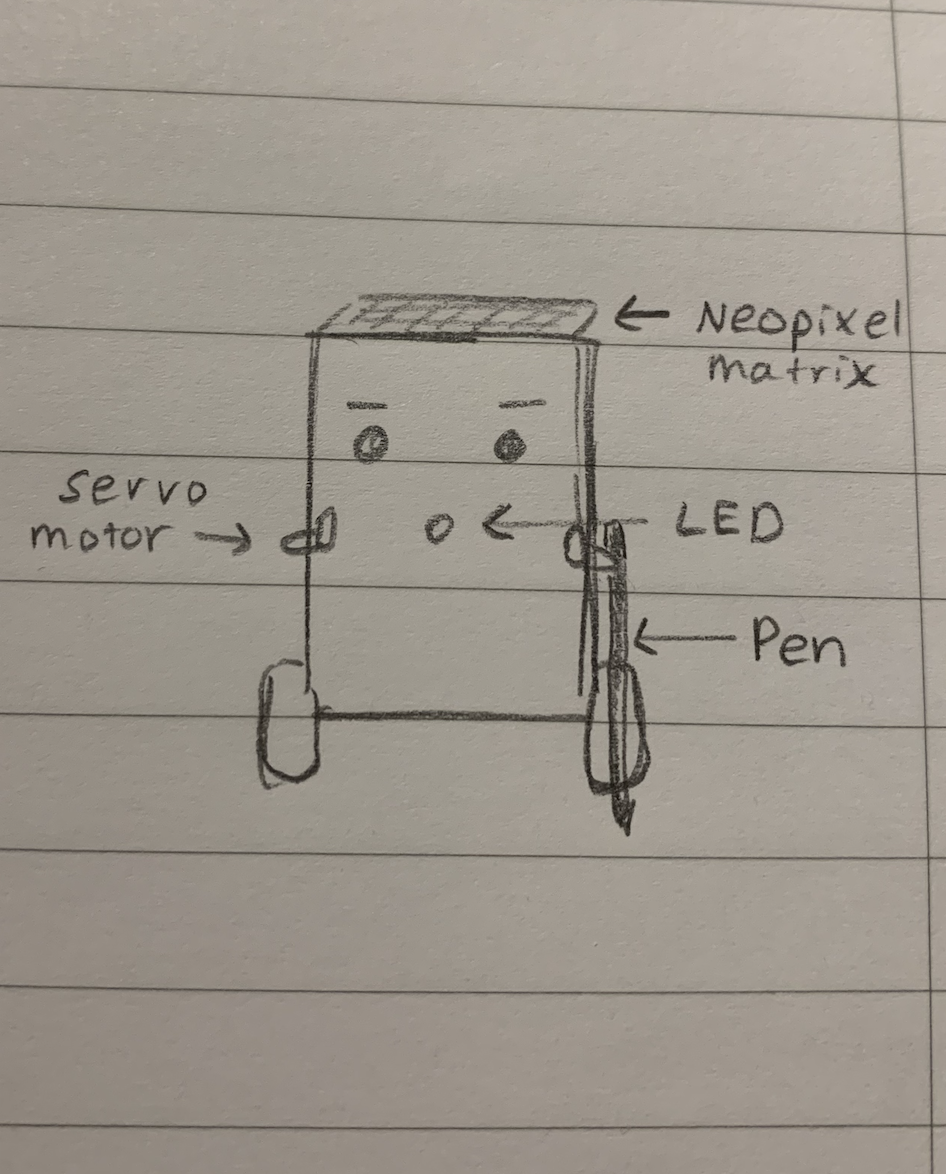 Neopixel
matrix
servo
motor
LED
Pen